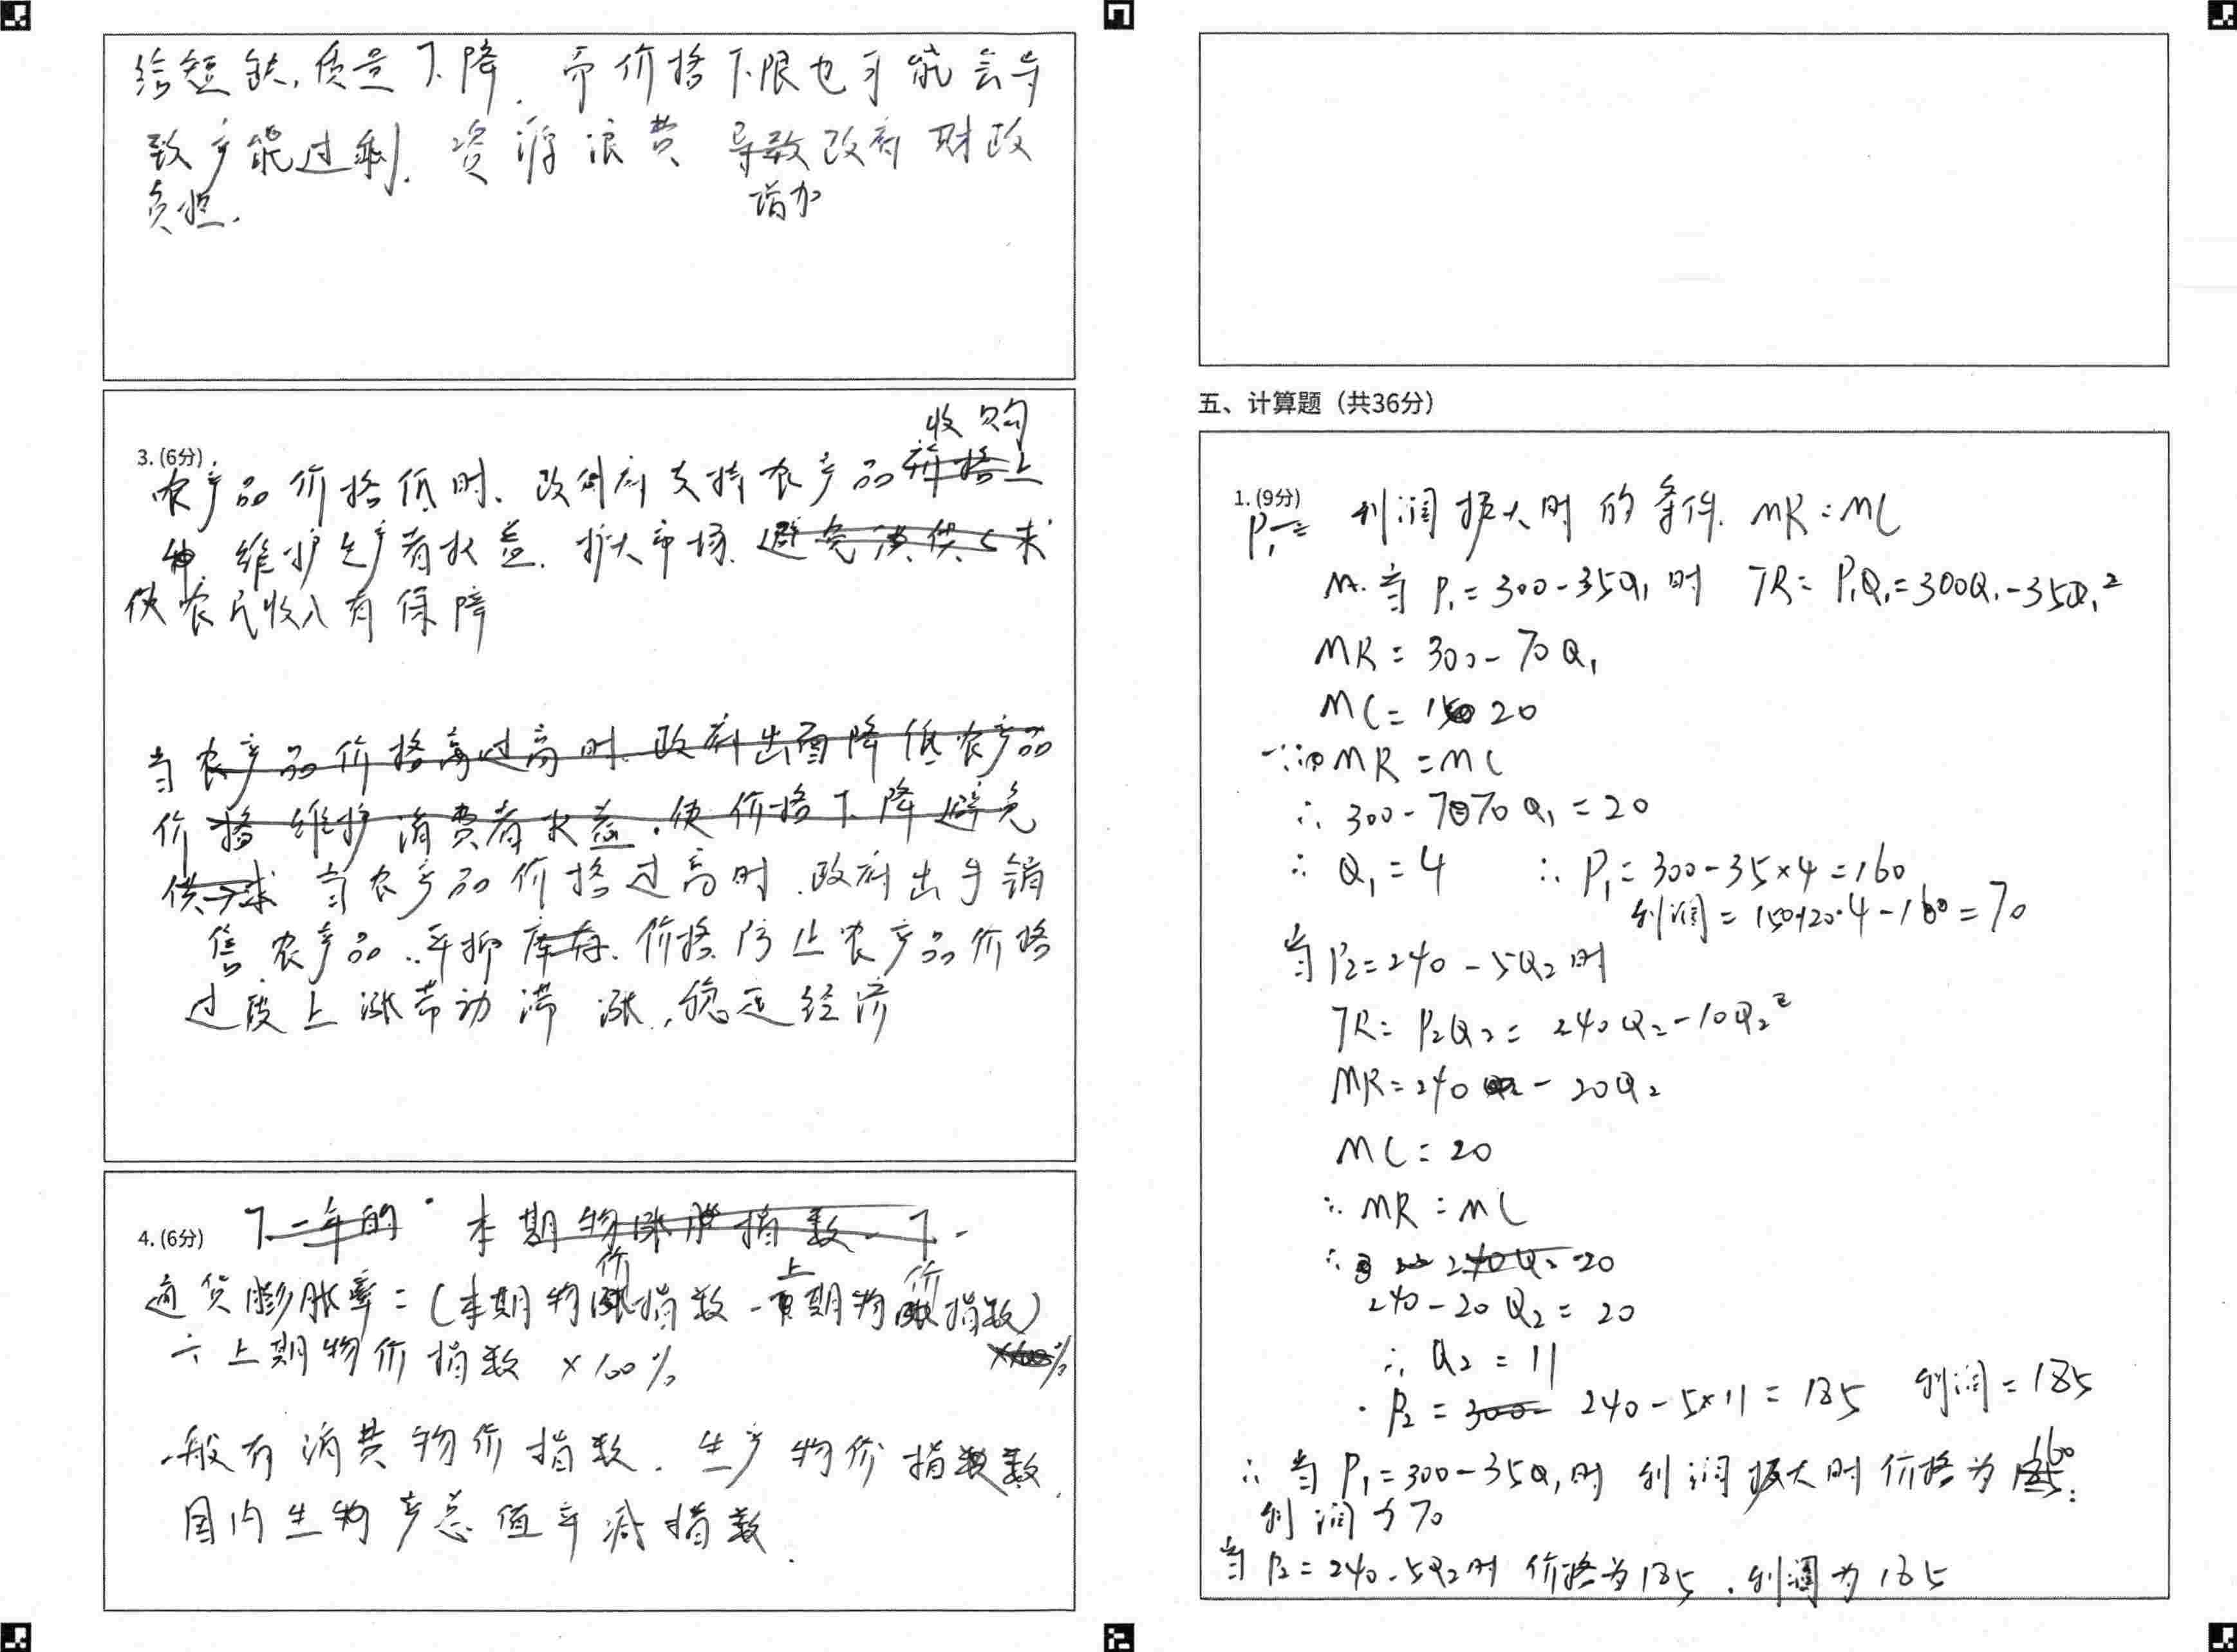 给短缺,质量下降.而价格下限也可能会导
致产能过剩.资源浪费 导致政府财政
负担. 增加
3.(6分)
收购
农产品价格低时、政府支持农产品
维护生产者权益.扩大市场.
使农民收入有保障
当农产品价格过高时.政府出面降低农产品
价格维护消费者权益.使价格下降避免
供求 当农产品价格过高时.政府出手销
售农产品..平抑库存.价格防止农产品价格
过度上涨带动滞涨.,稳定经济
4.(6分) 下一年的 本期物涨胀指数-下-
通货膨胀率=(本期物价指数-上期物价指数)
÷上期物价指数×100%
一般有消费物价指数.生产物价指数
国内生产总值平减指数.
五、计算题(共36分)
1.(9分) 利润极大时的条件. MR=MC
P₁=
当P₁=300-35Q₁时 TR=P₁Q₁=300Q₁-35Q₁²
MR=300-70Q₁
MC=20
∵MR=MC
∴300-70Q₁=20
∴Q₁=4 ∴P₁=300-35×4=160
利润=150+20·4-160=70
当P₂=240-5Q₂时
TR=P₂Q₂=240Q₂-10Q₂²
MR=240-20Q₂
MC=20
∵MR=MC
240-20Q₂=20
∴Q₂=11
P₂=300- 240-5×11=185 利润=185
∴当P₁=300-35Q₁时利润极大时价格为160:
利润为70
当P₂=240-5Q₂时价格为185.利润为185